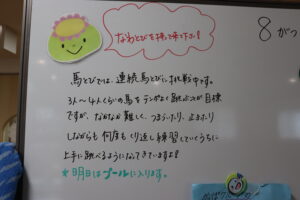 8 がつ
馬とびでは、連続馬とびに挑戦中です。
3人〜4人くらいの馬をテンポよく跳ぶことが目標
ですが、なかなか難しく、つまづいたり、止まったり
しながらも何度もくり返し練習していくうちに
上手に跳べるようになってきていますよ!
★明日はプールに入ります。